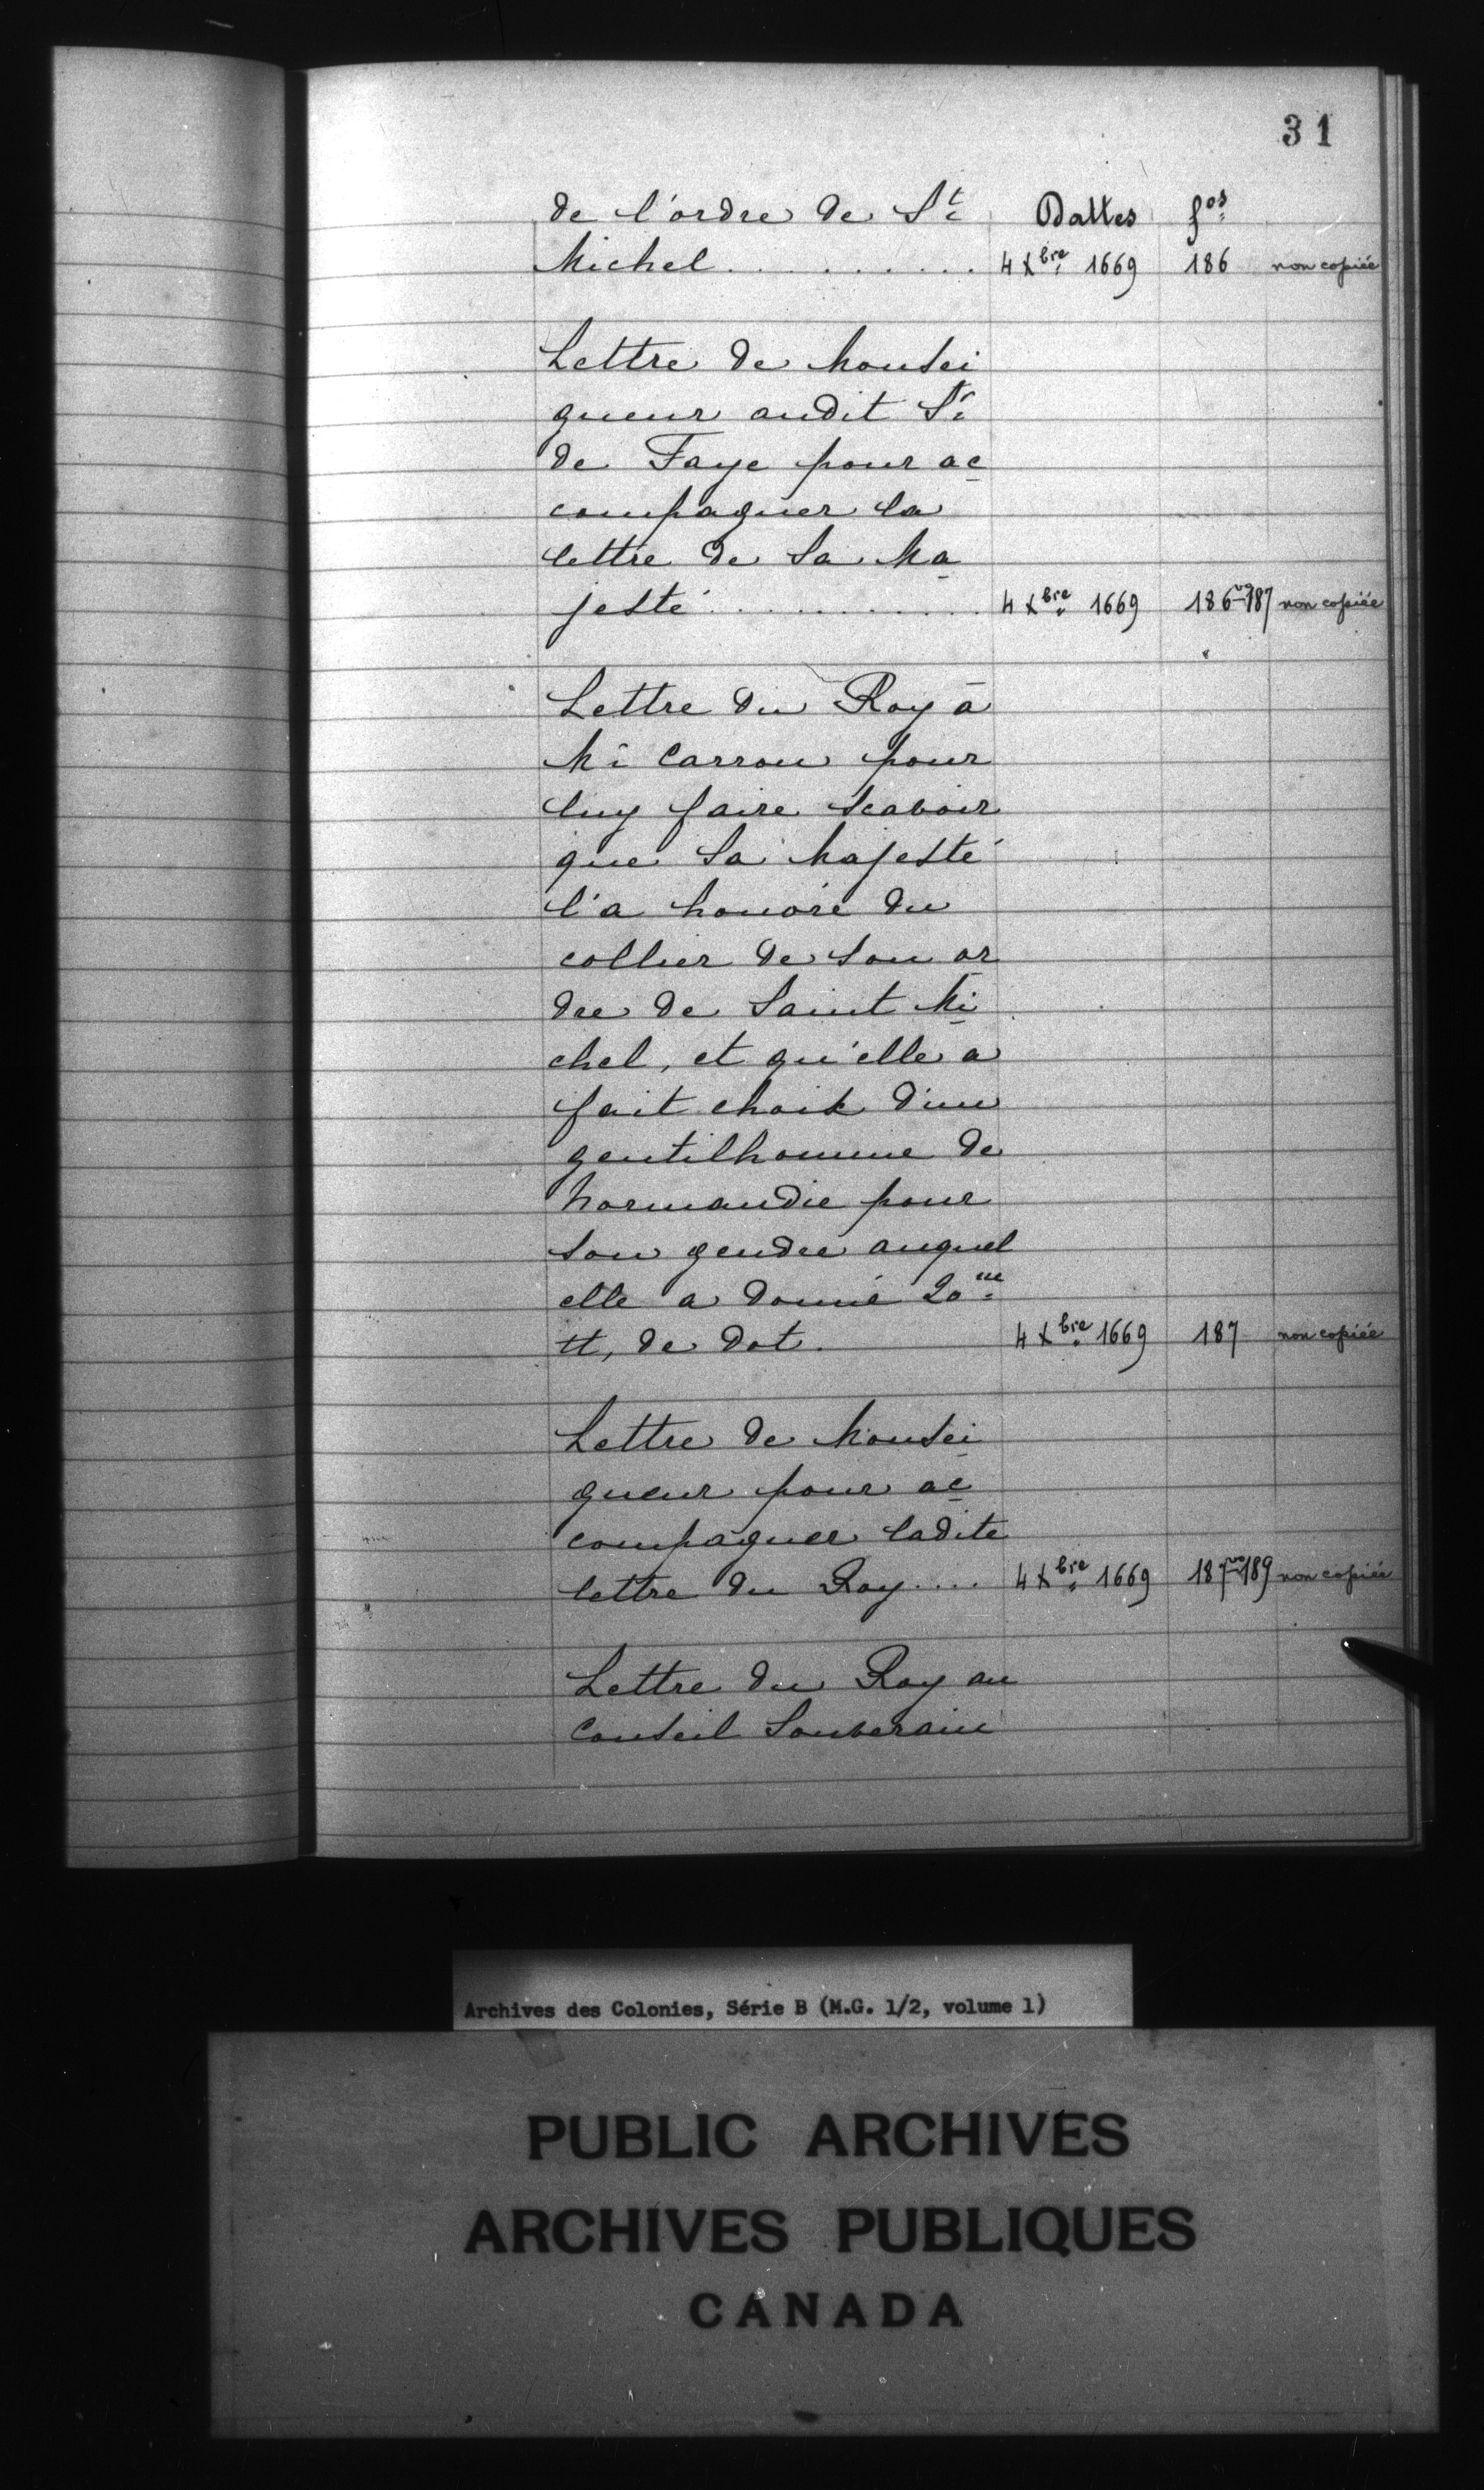 31
de l'ordre de St Dattes fos
Michel........... 4 Xbre 1669 186 non copiée
Lettre de Monsei
gneur audit Sr
de Faye pour ac
compagner la
lettre de Sa Ma
jesté............ 4 Xbre 1669 186vo-187 non copiée
Lettre du Roy à
Mr Carrou pour
luy faire scavoir
que Sa Majesté
l'a honoré du
collier de son or
dre de Saint Mi
chel, et qu'elle a
fait choix d'un
gentilhomme de
Normandie pour
son gendre auquel
elle a donné 20m
tt, de dot. 4 Xbre 1669 187 non copiée
Lettre de Monsei
gneur pour ac
compagner ladite
lettre du Roy.... 4 Xbre 1669 187vo-189 non copiée
Lettre du Roy au
Conseil Souverain
Archives des Colonies, Série B (M.G. 1/2, volume 1)
PUBLIC ARCHIVES
ARCHIVES PUBLIQUES
CANADA